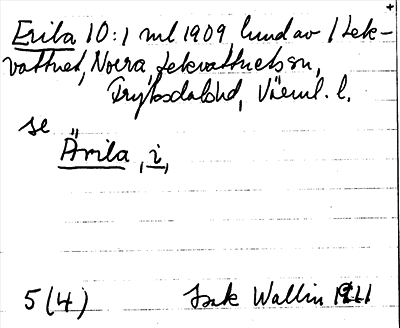 Erila 10:1 ml 1909 lund av / Lek-
vattnet, Norra, Lekvattnets sn,
Fryksdals hd, Värml. l.
se
Ärila, i,
5(4) Isak Wallin